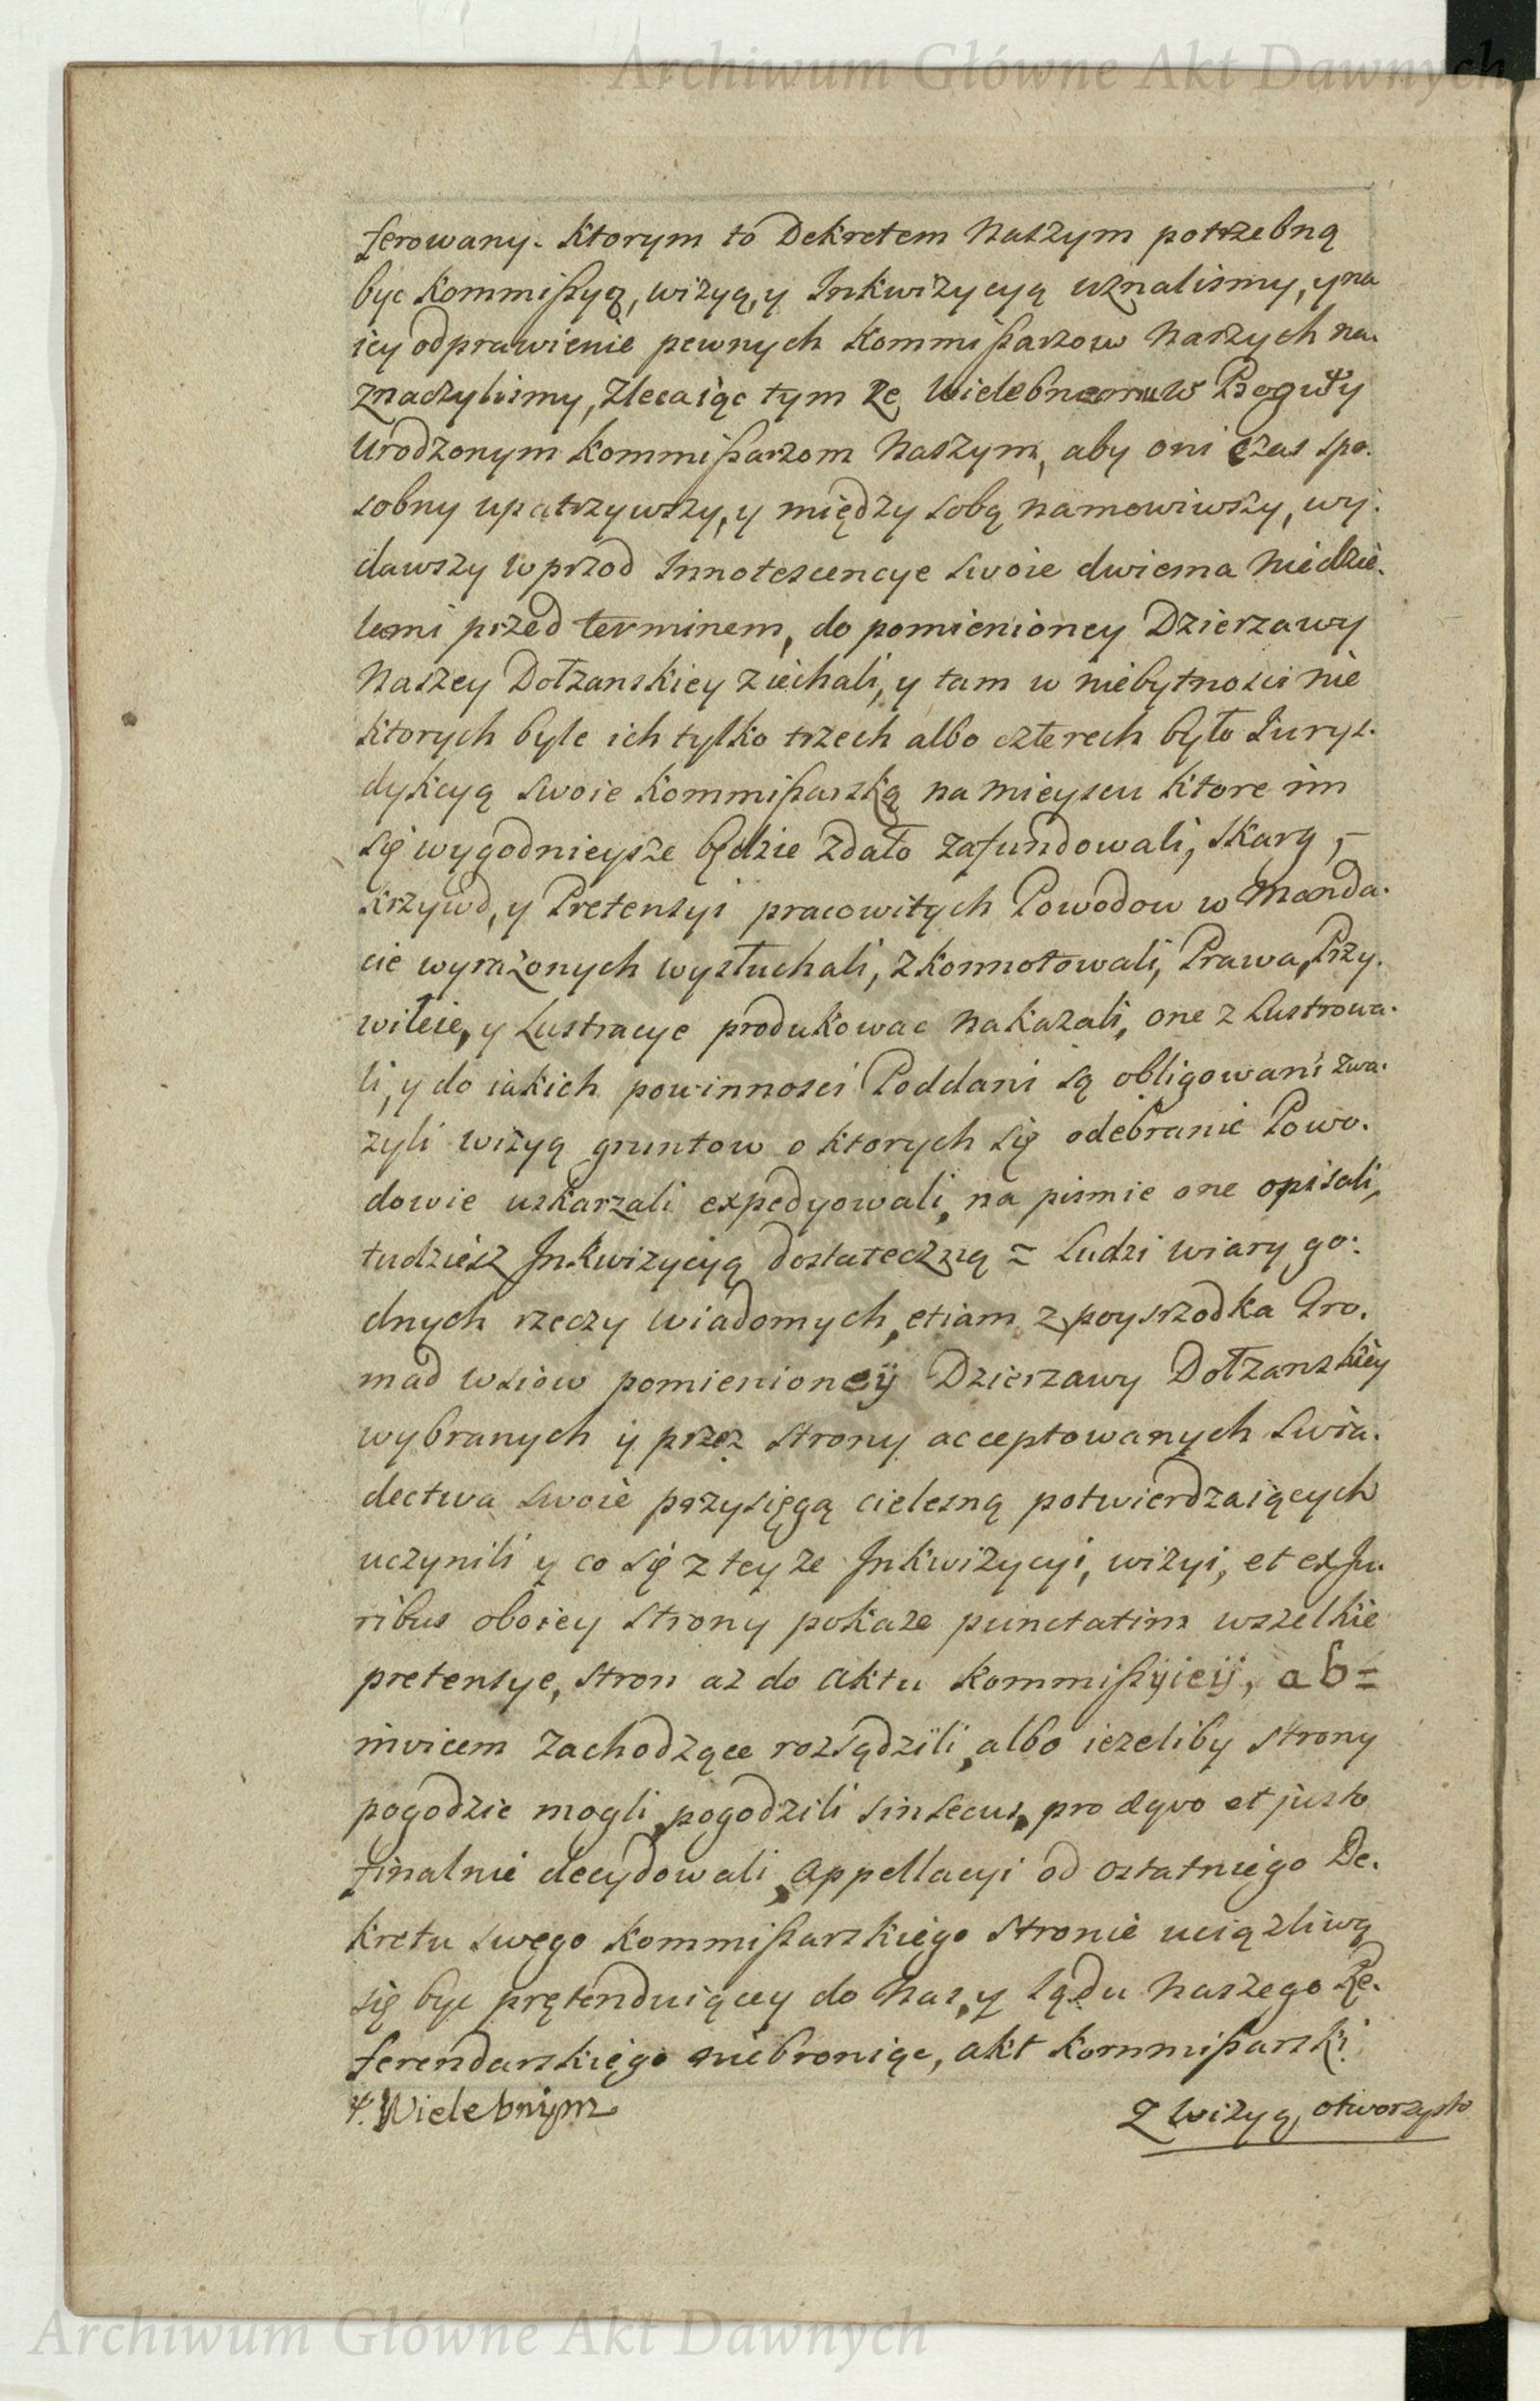 Archiwum Główne Akt Dawnych
ferowany. Ktorym to Dekretem Naszym potrzebną
byc Kommißyą, wizyą, y Inkwizycyą uznalismy, y na
iey odprawienie pewnych Kommißarzow Naszych na-
znaczylismy, Zlecaiąc tym ze w Bogu Ψ y
Urodzonym Kommißarzom Naszym, aby oni czas spo-
sobny upatrzywszy, y między sobą namowiwszy, wy-
dawszy wprzod Innotescencye swoie dwiema Niedzie-
lami przed terminem, do pomienioney Dzierzawy
Naszey Dołzanskiey ziechali, y tam w niebytnosci nie
ktorych byle ich tylko trzech albo czterech było Jurys-
dykcyą swoie Kommißarską na mieyscu ktore im
się wygodnieysze będzie zdało zafundowali, skarg,
krzywd, y Pretensyi pracowitych Powodow w Manda-
cie wyrażonych wysłuchali, zkonnotowali, Prawa, Przy-
wileie, y Lustracye produkowac nakazali, one zlustrowa-
li, y do iakich powinnosci Poddani są obligowani zwa-
zyli wizyą gruntow o ktorych się odebranie Powo-
dowie uskarzali expedyowali, na pismie one opisali,
tudziesz Inkwizycyą dostateczną = Ludzi wiary go-
dnych rzeczy wiadomych, etiam z poysrzodka Gro-
mad wsiow pomienioneÿ Dzierzawy Dołzanskiey
wybranych y przez strony acceptowanych swia-
dectwa swoie przysięgą cielesną potwierdzaiących
uczynili y co się z tey ze Inkwizycyi, wizyi, et ex Ju-
ribus oboiey strony pokaze punctatim wszelkie
pretensye, stron az do aktu Kommißÿieÿ, ab=
invicem zachodzące rozsądzili, albo iezeliby strony
pogodzic mogli, pogodzili sin secus, pro æqvo et justo
finalnie decydowali, Appellacyi od ostatniego De-
kretu swego Kommißarskiego stronie uciązliwą
się byc prętenduiącey do Nas, y Sądu Naszego Re-
ferendarskiego niebroniąc, akt Kommißarski
Ψ. Wielebnÿm
Z wizyą, otworzysto
Archiwum Główne Akt Dawnych